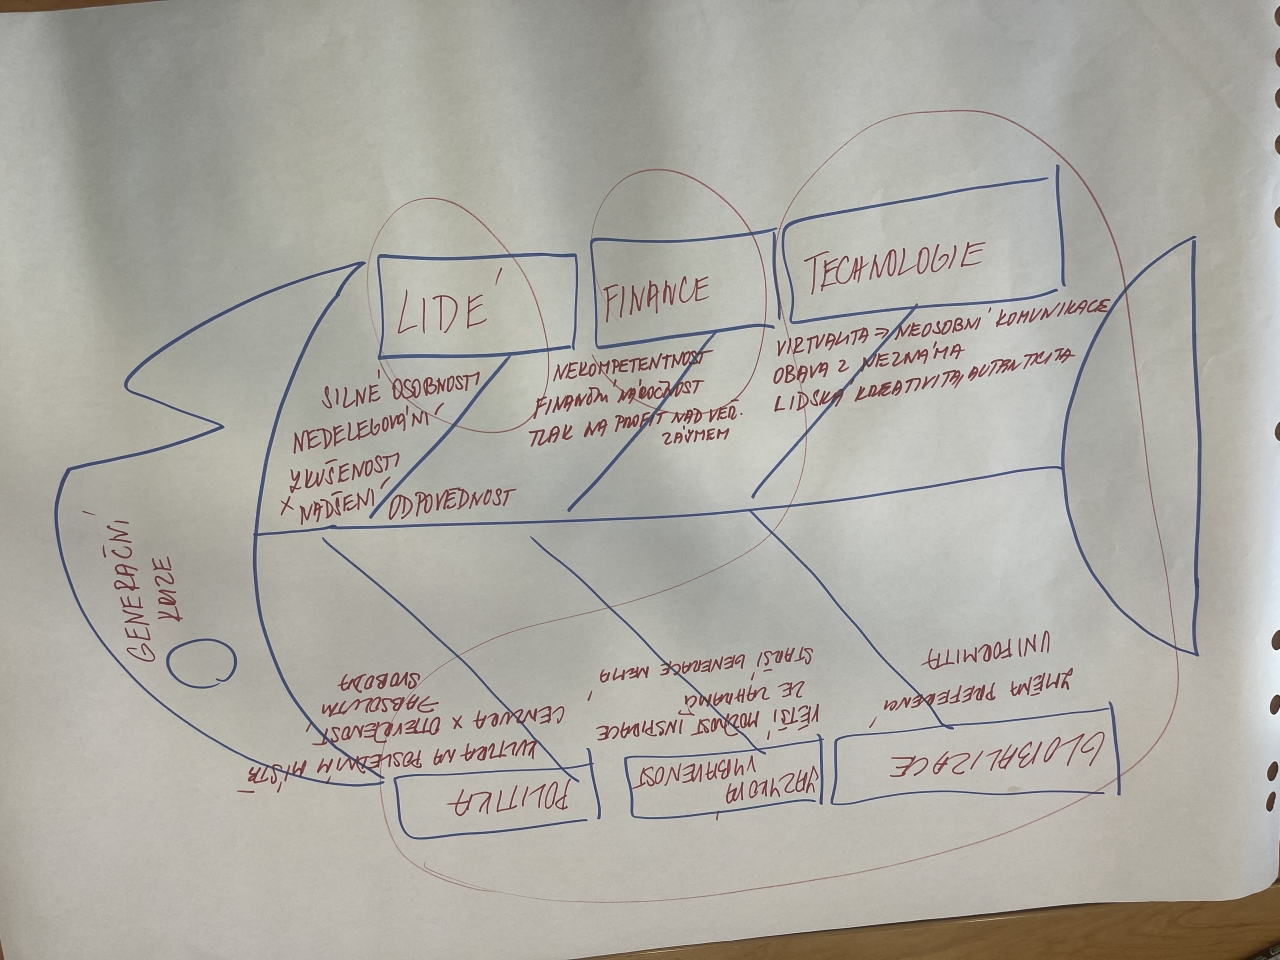 LIDÉ
SILNÉ OSOBNOSTI
NEDELEGOVÁNÍ
ZKUŠENOSTI
X NADŠENÍ
ODPOVĚDNOST
FINANCE
NEKOMPETENTNOST
FINANČNÍ NÁROČNOST
TLAK NA PROFIT NAD VEŘ.
ZÁJMEM
TECHNOLOGIE
VIRTUALITA => NEOSOBNÍ KOMUNIKACE
OBAVA Z NEZNÁMA
LIDSKÁ KREATIVITA, AUTENTICITA
GENERAČNÍ
KRIZE
GLOBALIZACE
ZMĚNA PREFERENCÍ
UNIFORMITA
JAZYKOVÁ
VYBAVENOST
VĚTŠÍ MOŽNOST INSPIRACE
ZE ZAHRANIČÍ
STARŠÍ GENERACE NEMÁ
POLITIKA
KULTURA NA POSLEDNÍM MÍSTĚ
CENZURA X OTEVŘENOST,
ABSOLUTNÍ
SVOBODA